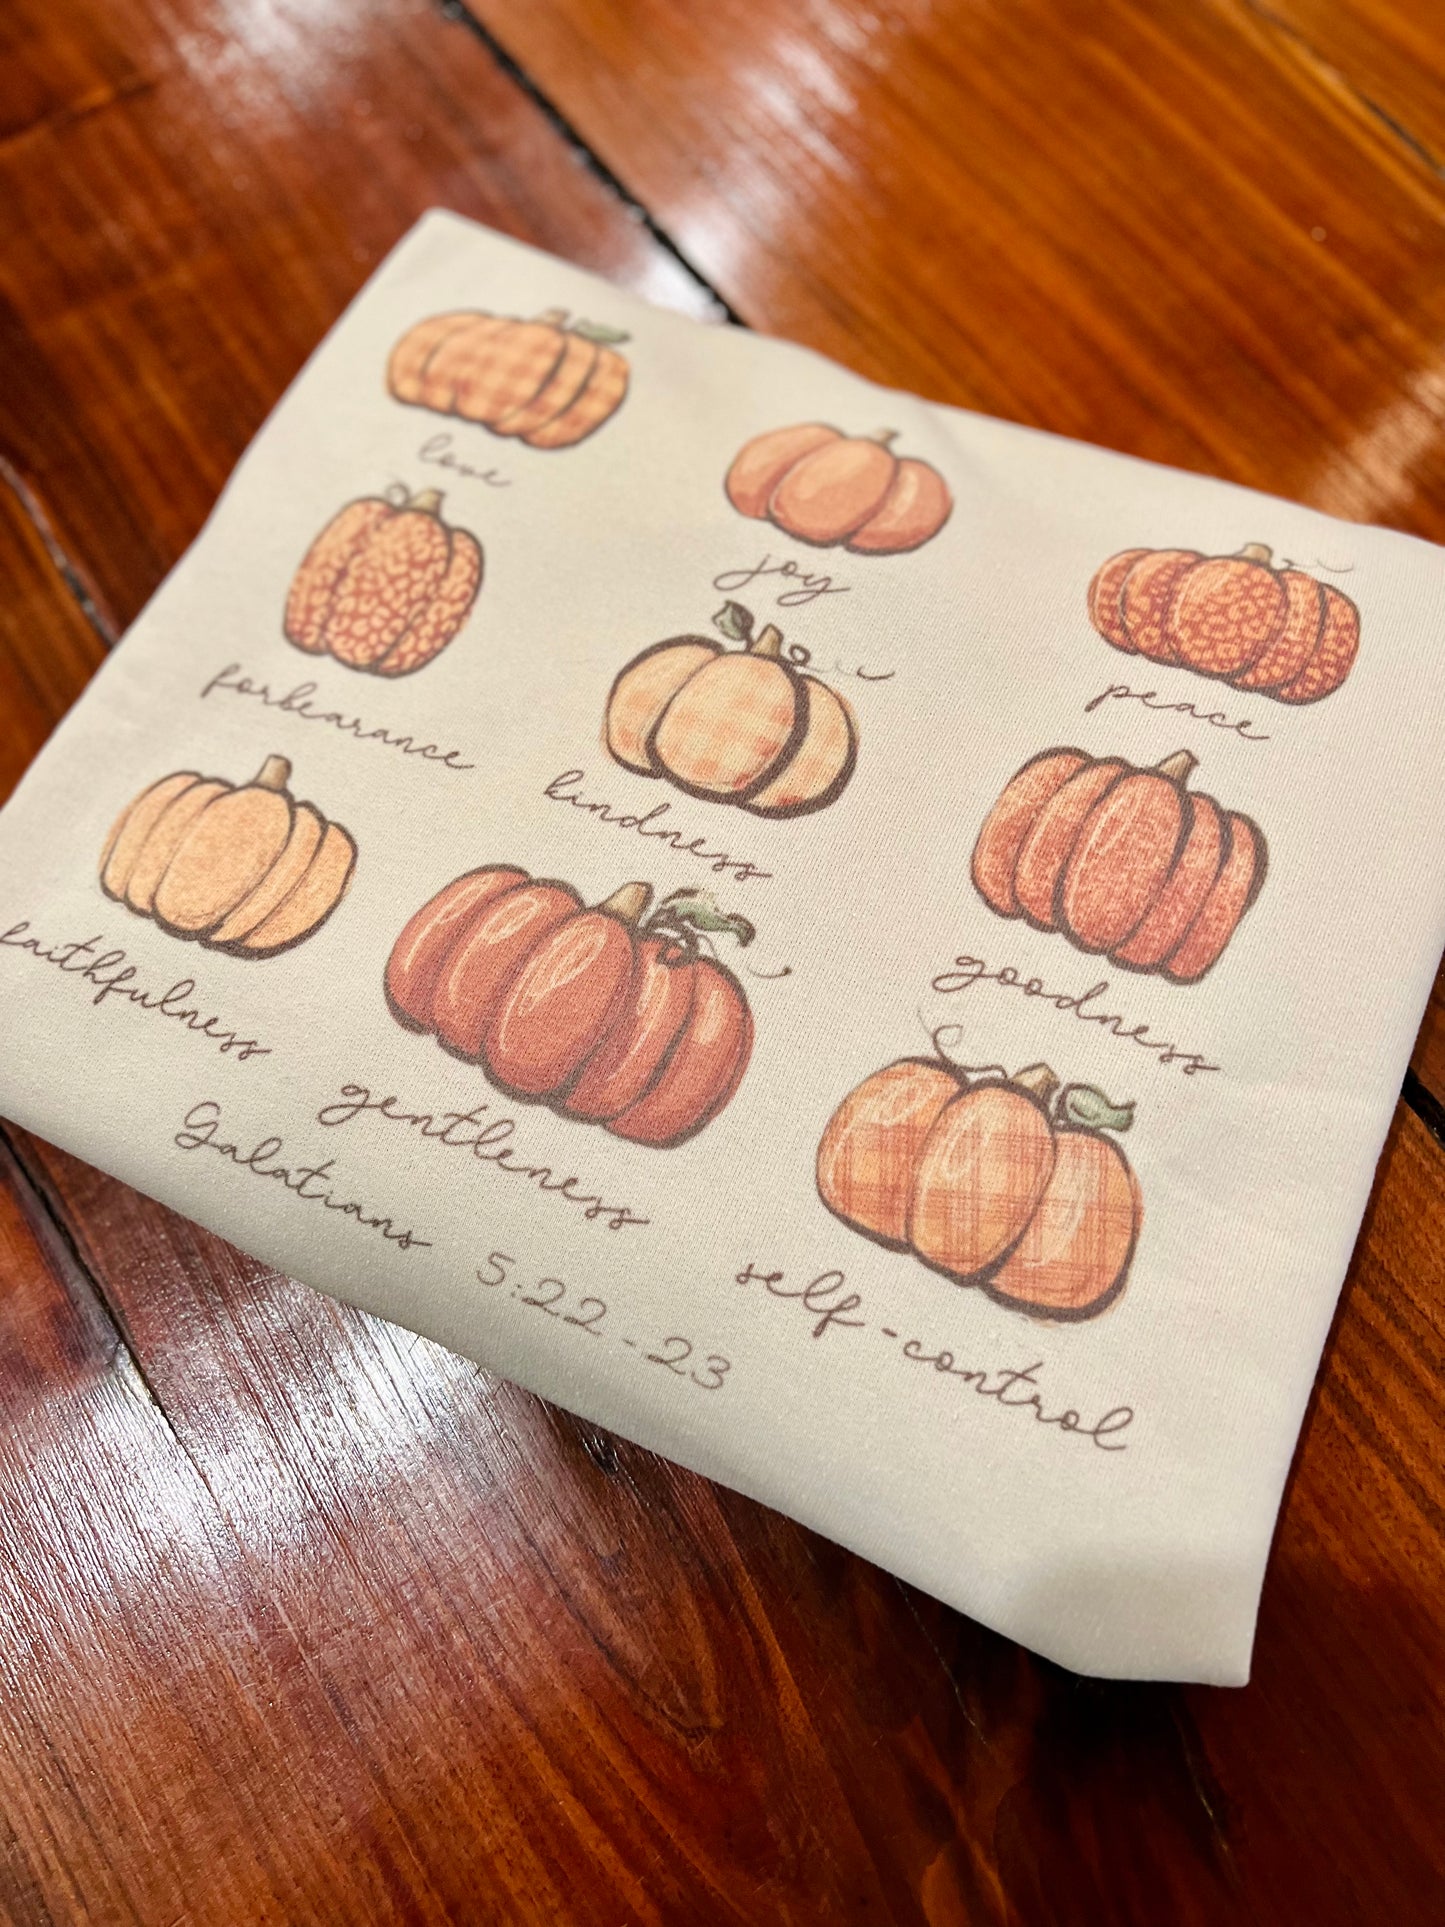 love
joy
peace
forbearance
kindness
goodness
faithfulness
gentleness
self-control
Galatians 5:22-23